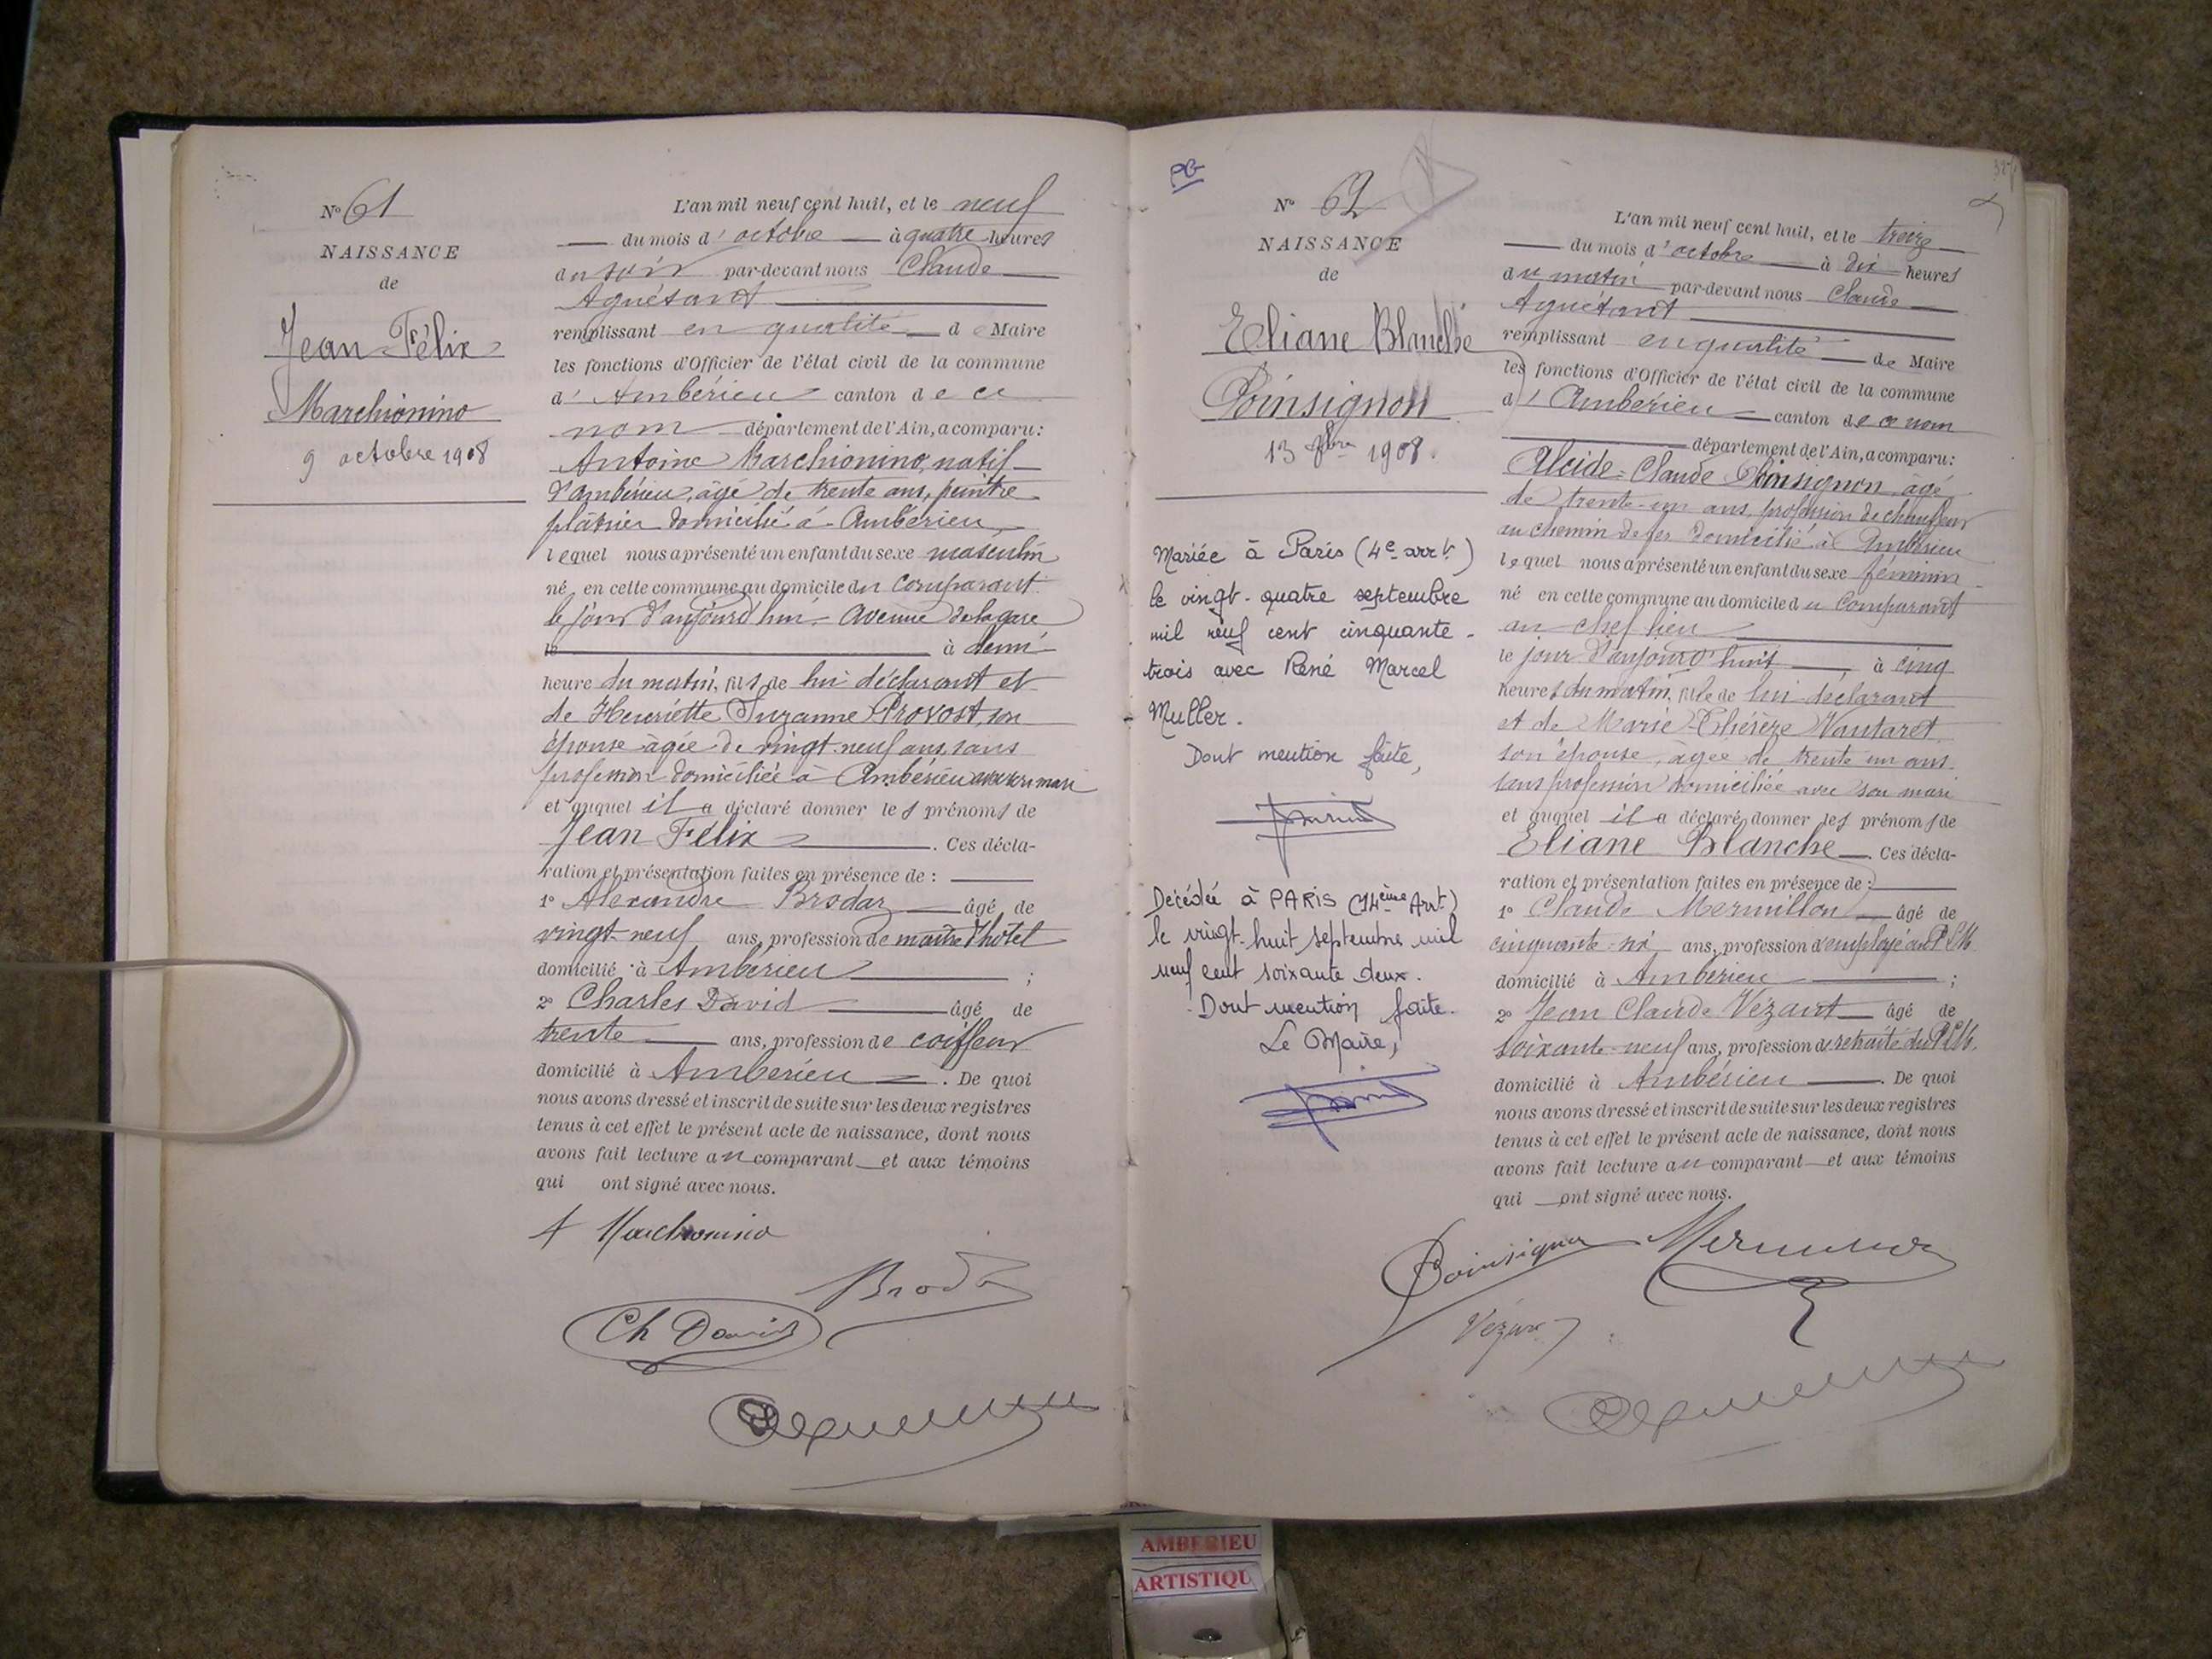 N° 61
NAISSANCE
de
Jean Félix
Marchionino
9 octobre 1908
L'an mil neuf cent huit, et le neuf
du mois d'octobre à quatre heures
du soir par-devant nous Claude
Aguétant
remplissant en qualité de Maire
les fonctions d'Officier de l'état civil de la commune
d'Ambérieu canton de ce
nom département de l'Ain, a comparu:
Antoine Marchionino, natif
d'Ambérieu, âgé de trente ans, peintre
plâtrier domicilié à Ambérieu
lequel nous a présenté un enfant du sexe masculin
né en cette commune au domicile du comparant
le jour d'aujourd'hui avenue de la gare
le à demi
heure du matin, fils de lui déclarant et
de Henriette Suzanne Provost, son
épouse âgée de vingt neuf ans, sans
profession domiciliée à Ambérieu avec son mari
et auquel il a déclaré donner les prénoms de
Jean Félix . Ces décla-
ration et présentation faites en présence de :
1° Alexandre Brodaz âgé de
vingt-neuf ans, profession de maître d'hôtel
domicilié à Ambérieu ;
2° Charles David âgé de
trente ans, profession de coiffeur
domicilié à Ambérieu . De quoi
nous avons dressé et inscrit de suite sur les deux registres
tenus à cet effet le présent acte de naissance, dont nous
avons fait lecture au comparant et aux témoins
qui ont signé avec nous.
A Marchionino
Broda
Ch David
N° 62
NAISSANCE
de
Eliane Blanche
Poinsignon
13 8bre 1908.
Mariée à Paris (4e arrt)
le vingt-quatre septembre
mil neuf cent cinquante-
trois avec René Marcel
Muller.
Dont mention faite,
Décédée à PARIS (14ème Arrt)
le vingt-huit septembre mil
neuf cent soixante deux.
Dont mention faite.
Le Maire,
L'an mil neuf cent huit, et le treize
du mois d'octobre à dix heures
du matin par-devant nous Claude
Aguétant
remplissant en qualité de Maire
les fonctions d'Officier de l'état civil de la commune
d'Ambérieu canton de ce nom
département de l'Ain, a comparu:
Alcide-Claude Poinsignon âgé
de trente-un ans, profession de chauffeur
au chemin de fer domicilié à Ambérieu
lequel nous a présenté un enfant du sexe féminin
né en cette commune au domicile du comparant
au chef lieu
le jour d'aujourd'huit à cinq
heures du matin, fille de lui déclarant
et de Marie-Thérèze Nantaret
son épouse, âgée de trente un ans
sans profession domiciliée avec son mari
et auquel il a déclaré donner les prénoms de
Eliane Blanche . Ces décla-
ration et présentation faites en présence de :
1° Claude Mermillon âgé de
cinquante-six ans, profession d'employé au PLM
domicilié à Ambérieu ;
2° Jean Claude Vézant âgé de
soixante-neuf ans, profession de retraité du PLM,
domicilié à Ambérieu . De quoi
nous avons dressé et inscrit de suite sur les deux registres
tenus à cet effet le présent acte de naissance, dont nous
avons fait lecture au comparant et aux témoins
qui ont signé avec nous.
Poinsignon
AMBERIEU
ARTISTIQU